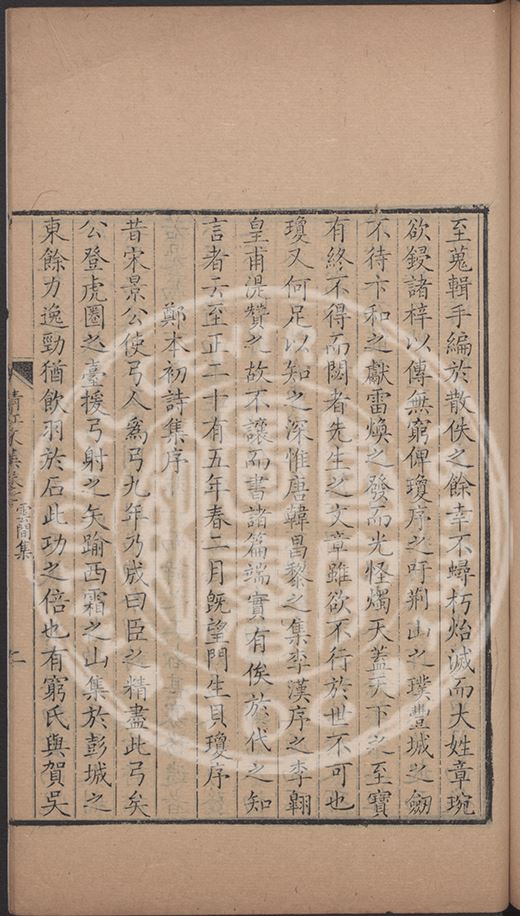 至蒐輯手編於散佚之餘幸不蟫朽殆滅而大姓章琬
欲鋟諸梓以傳無窮俾瓊序之吁荆山之璞豐城之劒
不待卞和之獻雷煥之發而光怪燭天蓋天下之至寶
有終不得而閟者先生之文章雖欲不行於世不可也
瓊又何足以知之深惟唐韓昌黎之集李漢序之李翱
皇甫湜贊之故不讓而書諸篇端實有俟於代之知
言者云至正二十有五年春二月旣望門生貝瓊序
鄭本初詩集序
昔宋景公使弓人爲弓九年乃成曰臣之精盡此弓矣
公登虎圈之臺援弓射之矢踰西霜之山集於彭城之
東餘力逸勁猶飲羽於石此功之倍也有窮氏與賀吳
清江文集卷七 雲間集